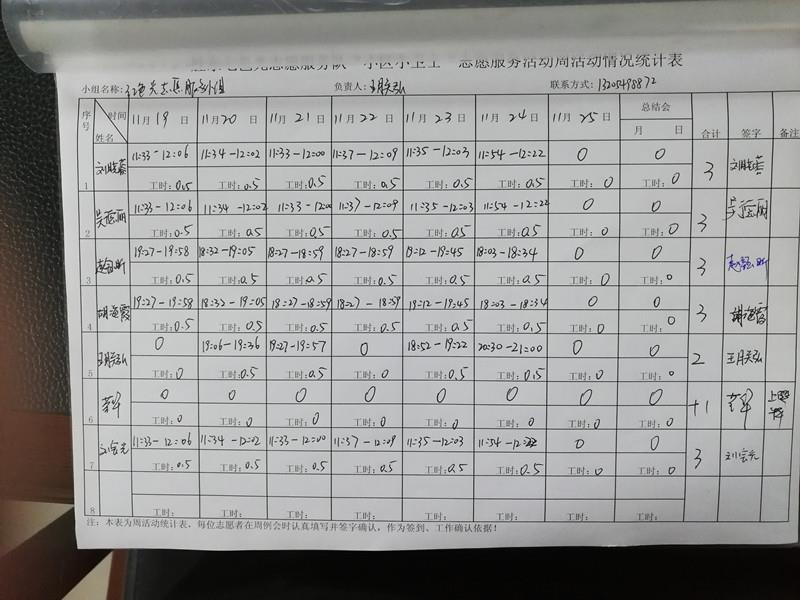 志愿服务队"小区小卫士"志愿服务活动周活动情况统计表
小组名称: 负责人: 联系方式: 13205498872
序号 时间 姓名 11月19日 11月20日 11月21日 11月22日 11月23日 11月24日 11月25日 总结会 月 日 合计 签字 备注
11:33-12:06 11:34-12:02 11:33-12:00 11:37-12:09 11:35-12:03 11:54-12:22 0 0
1 工时:0.5 工时:0.5 工时:0.5 工时:0.5 工时:0.5 工时:0.5 工时:0 工时:0 3
11:33-12:06 11:34-12:02 11:33-12:00 11:37-12:09 11:35-12:03 11:54-12:22 0 0
2 工时:0.5 工时:0.5 工时:0.5 工时:0.5 工时:0.5 工时:0.5 工时:0 工时:0 3
19:27-19:58 18:32-19:05 18:27-18:59 18:27-18:59 19:12-19:45 18:03-18:34 0 0
3 工时:0.5 工时:0.5 工时:0.5 工时:0.5 工时:0.5 工时:0.5 工时:0 工时:0 3
胡海霞 19:27-19:58 18:32-19:05 18:27-18:59 18:27-18:59 19:12-19:45 18:03-18:34 0 0
4 工时:0.5 工时:0.5 工时:0.5 工时:0.5 工时:0.5 工时:0.5 工时:0 工时:0 3 胡海霞
0 19:06-19:36 19:27-19:57 0 18:52-19:22 20:30-21:00 0 0
5 工时:0 工时:0.5 工时:0.5 工时:0 工时:0.5 工时:0.5 工时:0 工时:0 2
0 0 0 0 0 0 0 0
6 工时:0 工时:0 工时:0 工时:0 工时:0 工时:0 工时:0 工时:0 +1
刘会元 11:33-12:06 11:34-12:02 11:33-12:00 11:37-12:09 11:35-12:03 11:54-12:22 0 0
7 工时:0.5 工时:0.5 工时:0.5 工时:0.5 工时:0.5 工时:0.5 工时:0 工时:0 3 刘会元
8 工时: 工时: 工时: 工时: 工时: 工时: 工时: 工时:
注:本表为周活动统计表,每位志愿者在周例会时认真填写并签字确认,作为签到、工作确认依据!